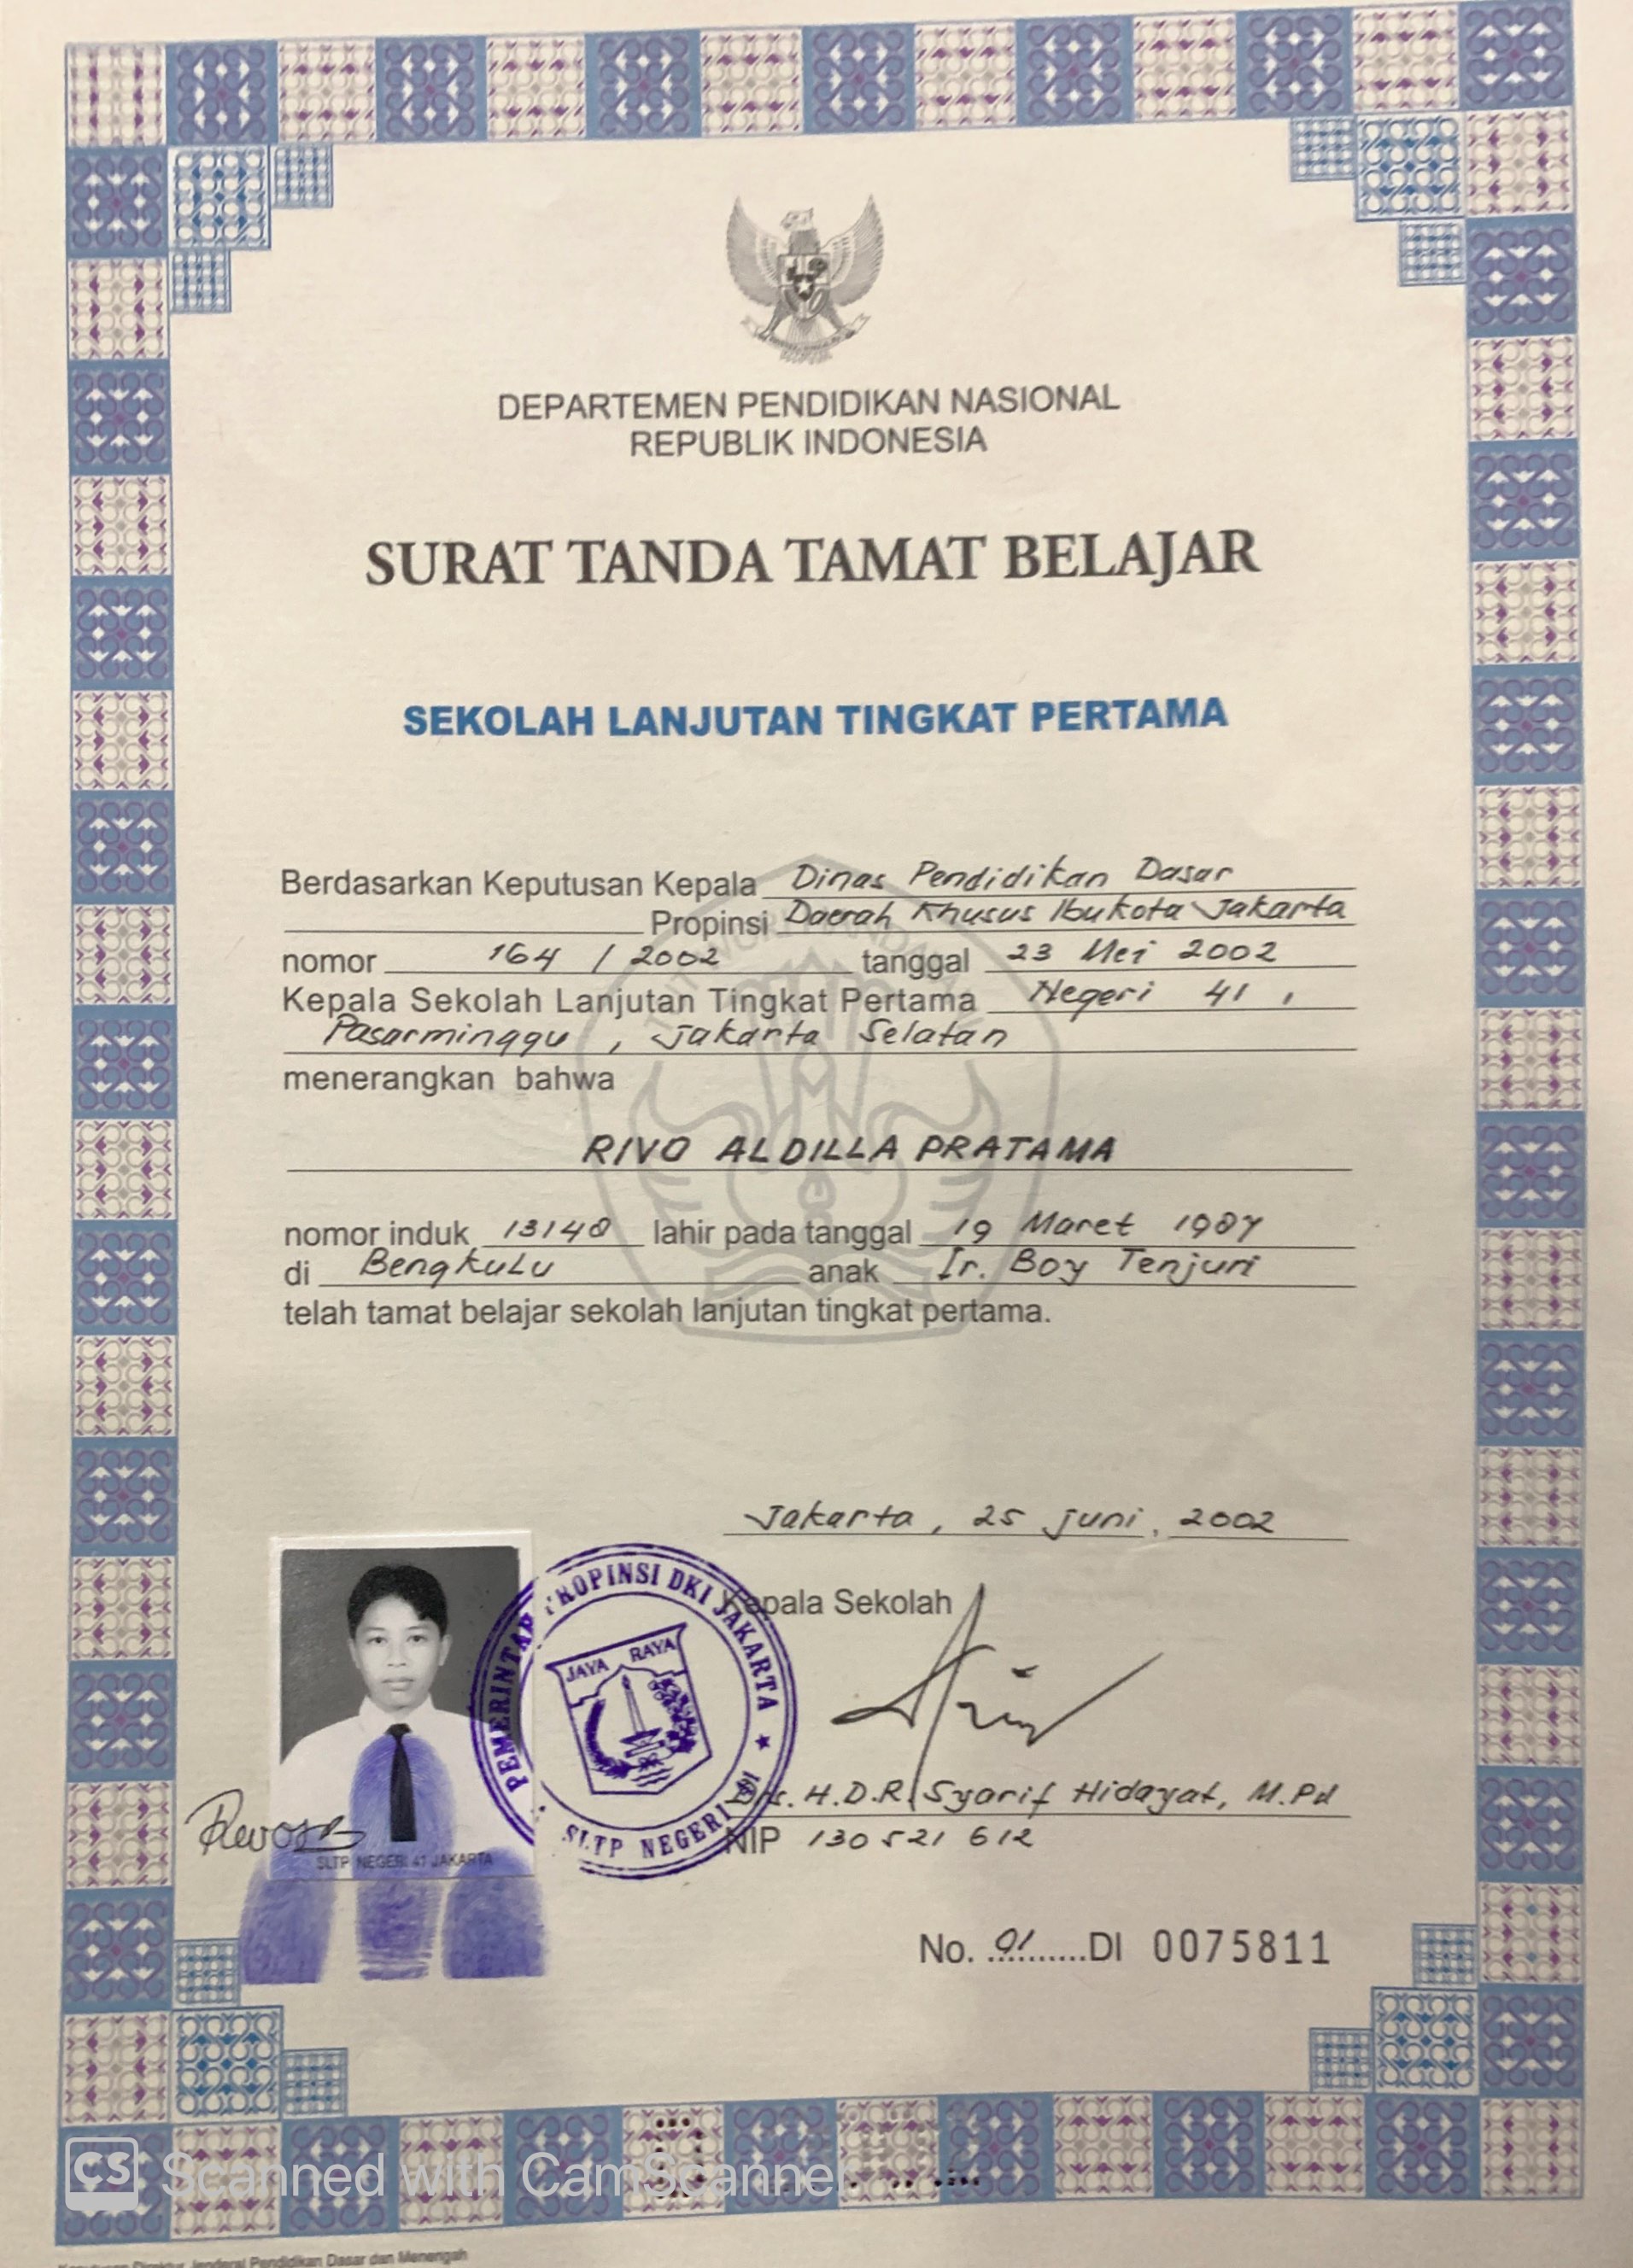 DEPARTEMEN PENDIDIKAN NASIONAL
REPUBLIK INDONESIA
SURAT TANDA TAMAT BELAJAR
SEKOLAH LANJUTAN TINGKAT PERTAMA
Berdasarkan Keputusan Kepala Dinas Pendidikan Dasar
Propinsi Daerah Khusus Ibukota Jakarta
nomor 164 / 2002 tanggal 23 Mei 2002
Kepala Sekolah Lanjutan Tingkat Pertama Negeri 41,
Pasarminggu, Jakarta Selatan
menerangkan bahwa
RIVO ALDILLA PRATAMA
nomor induk 13148 lahir pada tanggal 19 Maret 1987
di Bengkulu anak Ir. Boy Tenjuri
telah tamat belajar sekolah lanjutan tingkat pertama.
Jakarta, 25 juni, 2002
Kepala Sekolah
PEMERINTAH PROPINSI DKI JAKARTA
JAYA RAYA
SLTP NEGERI 41
Drs. H.D.R. Syarif Hidayat, M.Pd
NIP 130 521 612
SLTP NEGERI 41 JAKARTA
No. 01 DI 0075811
CS Scanned with CamScanner
Keputusan Direktur Jenderal Pendidikan Dasar dan Menengah